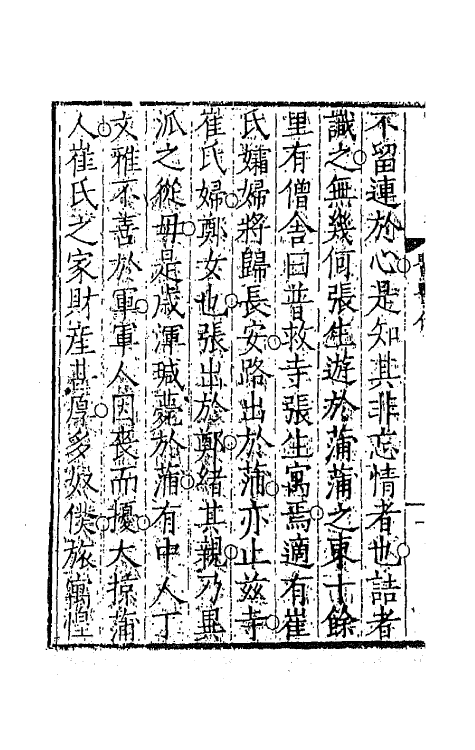 不留連於心是知其非忘情者也詰者
識之無幾何張生遊於蒲蒲之東十餘
里有僧舍曰普救寺張生寓焉適有崔
氏孀婦將歸長安路出於蒲亦止兹寺
崔氏婦鄭女也張出於鄭緒其親乃異
派之從母是歳渾瑊薨於蒲有中人丁
文雅不善於軍軍人因喪而擾大掠蒲
人崔氏之家財産甚厚多奴僕旅寓惶